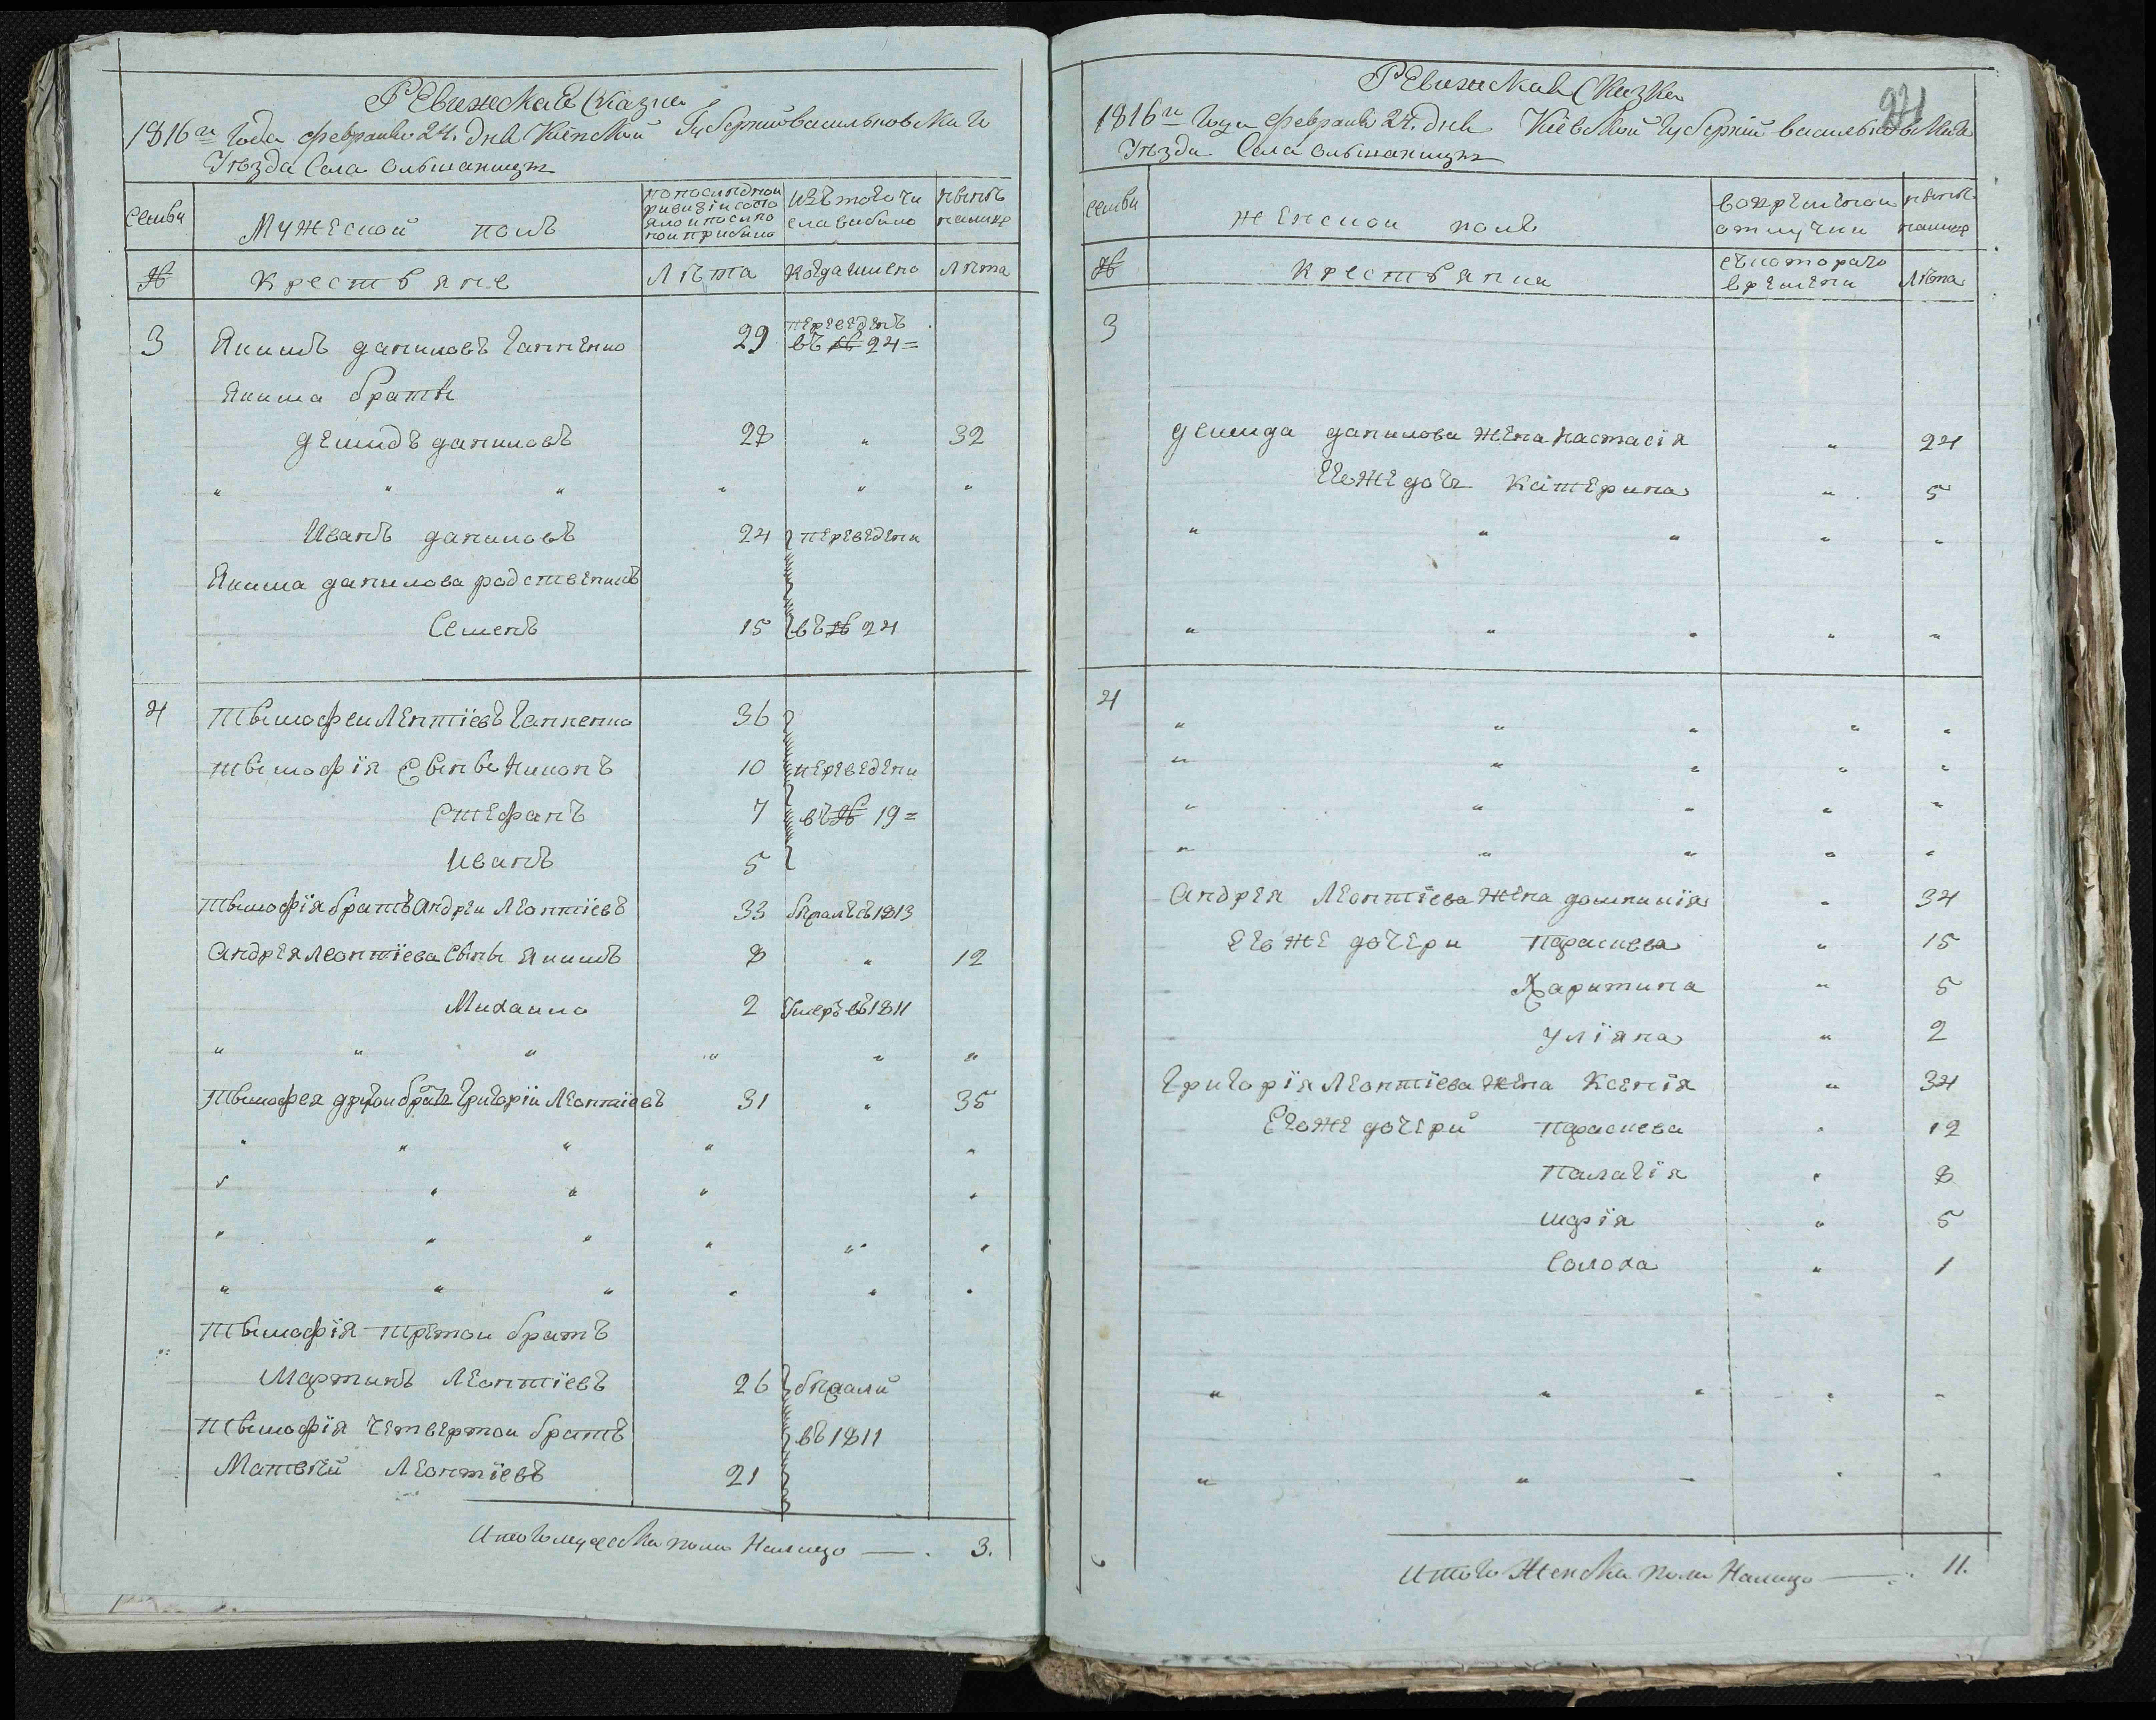 Ревижская Сказка
1816 го Года февраля 24. дня Киевской Губернии васильковскаго
Уезда Села ольшаницы
Семьи
Мужеской полъ
по последной ревизии состояло и после по
нои прибыло
Изъ того числа выбыло
ныне налице
№
крестьяне
Лѣта
когда имено
Лѣта
3 Якимъ даниловъ Ганненко 29 переведенъ въ № 24=
Якима братья
демидъ даниловъ 28 " 32
" " " " " "
Иванъ даниловъ 24 переведени
Якима данилова родственикъ
Семенъ 15 въ № 24
4 Тымофеи Леонтіевъ Ганненко 36
тымофія Сыны Никонъ 10 переведени
Стефанъ 7 въ № 19=
Иванъ 5
Тымофія братъ Андреи Леонтіевъ 33 бежалъ въ 1813
Андрея Леонтіева Сыны Якимъ 8 " 12
Михаило 2 Умеръ въ 1811
" " " " " "
Тымофея другои братъ Григоріи Леонтіевъ 31 " 35
" " " " "
" " " " "
" " " " " "
" " " " " "
Тымофія третои братъ
Мартинъ Леонтіевъ 26 бежали
Тымофія Четвертои братъ въ 1811
Матвей Леонтіевъ 21
Итого мужеска пола Налицо — . 3.
24
Ревижская Сказка
1816 го Года февраля 24. дня Кіевской Губерніи васильковскаго
Уезда Села ольшаницы
Семьи
женскои полъ
вовремянои отлучки
ныне налице
№
крестьянки
съ которого времени
Лѣта
3
демида данилова жена настасія " 24
Егоже дочь Катерина " 5
" " " " "
" " " " "
4
" " " " "
" " " " "
" " " " "
" " " " "
Андрея Леонтіева жена домникія " 34
Егоже дочери параскева " 15
Харитина " 5
уліяна " 2
Григорія Леонтіева жена Ксенія " 34
Егоже дочерй параскева " 12
Палагія " 8
марія " 5
Солоха " 1
" " " " "
" " - " "
Итого Женска пола Налицо — . 11.